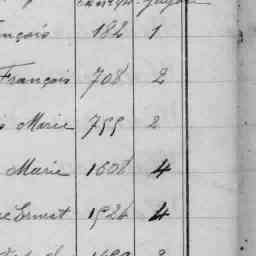 nçois 182 1
François 708 2
s Marie 799 2
Marie 1608 4
Ernest 1526 4